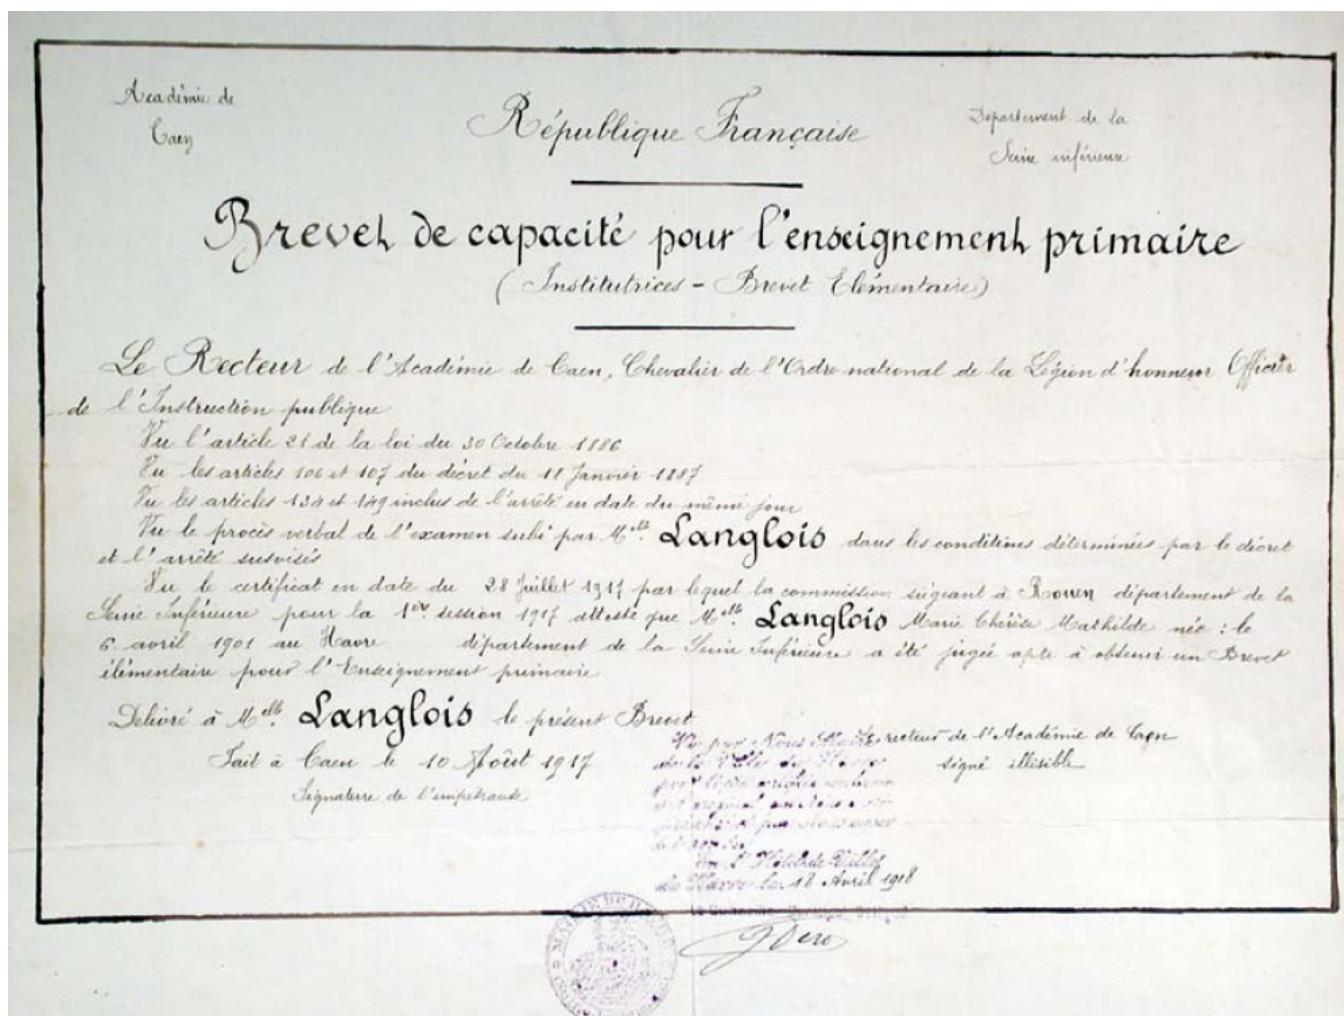 Académie de
Caen
République Française
Département de la
Seine inférieure
Brevet de capacité pour l'enseignement primaire
(Institutrices - Brevet Elémentaire)
Le Recteur de l'Académie de Caen, Chevalier de l'Ordre national de la Légion d'honneur Officier
de l'Instruction publique
Vu l'article 21 de la loi du 30 Octobre 1886
Vu les articles 106 et 107 du décret du 18 Janvier 1887
Vu les articles 134 et 149 inclus de l'arrêté en date du même jour
Vu le procès verbal de l'examen subi par Melle Langlois dans les conditions déterminées par le décret
et l'arrêté susvisés
Vu le certificat en date du 28 Juillet 1917 par lequel la commission siégeant à Rouen département de la
Seine Inférieure pour la 1ère session 1917 atteste que Melle Langlois Marie Thérèse Mathilde née : le
6 avril 1901 au Havre département de la Seine Inférieure a été jugée apte à obtenir un Brevet
élémentaire pour l'Enseignement primaire
Délivré à Melle Langlois le présent Brevet
Fait à Caen le 10 Août 1917
Signature de l'impétrante
le recteur de l'Académie de Caen
signé illisible
Vu par Nous Maire
de la Ville du Havre
En l'Hôtel de Ville
du Havre le 18 Avril 1918